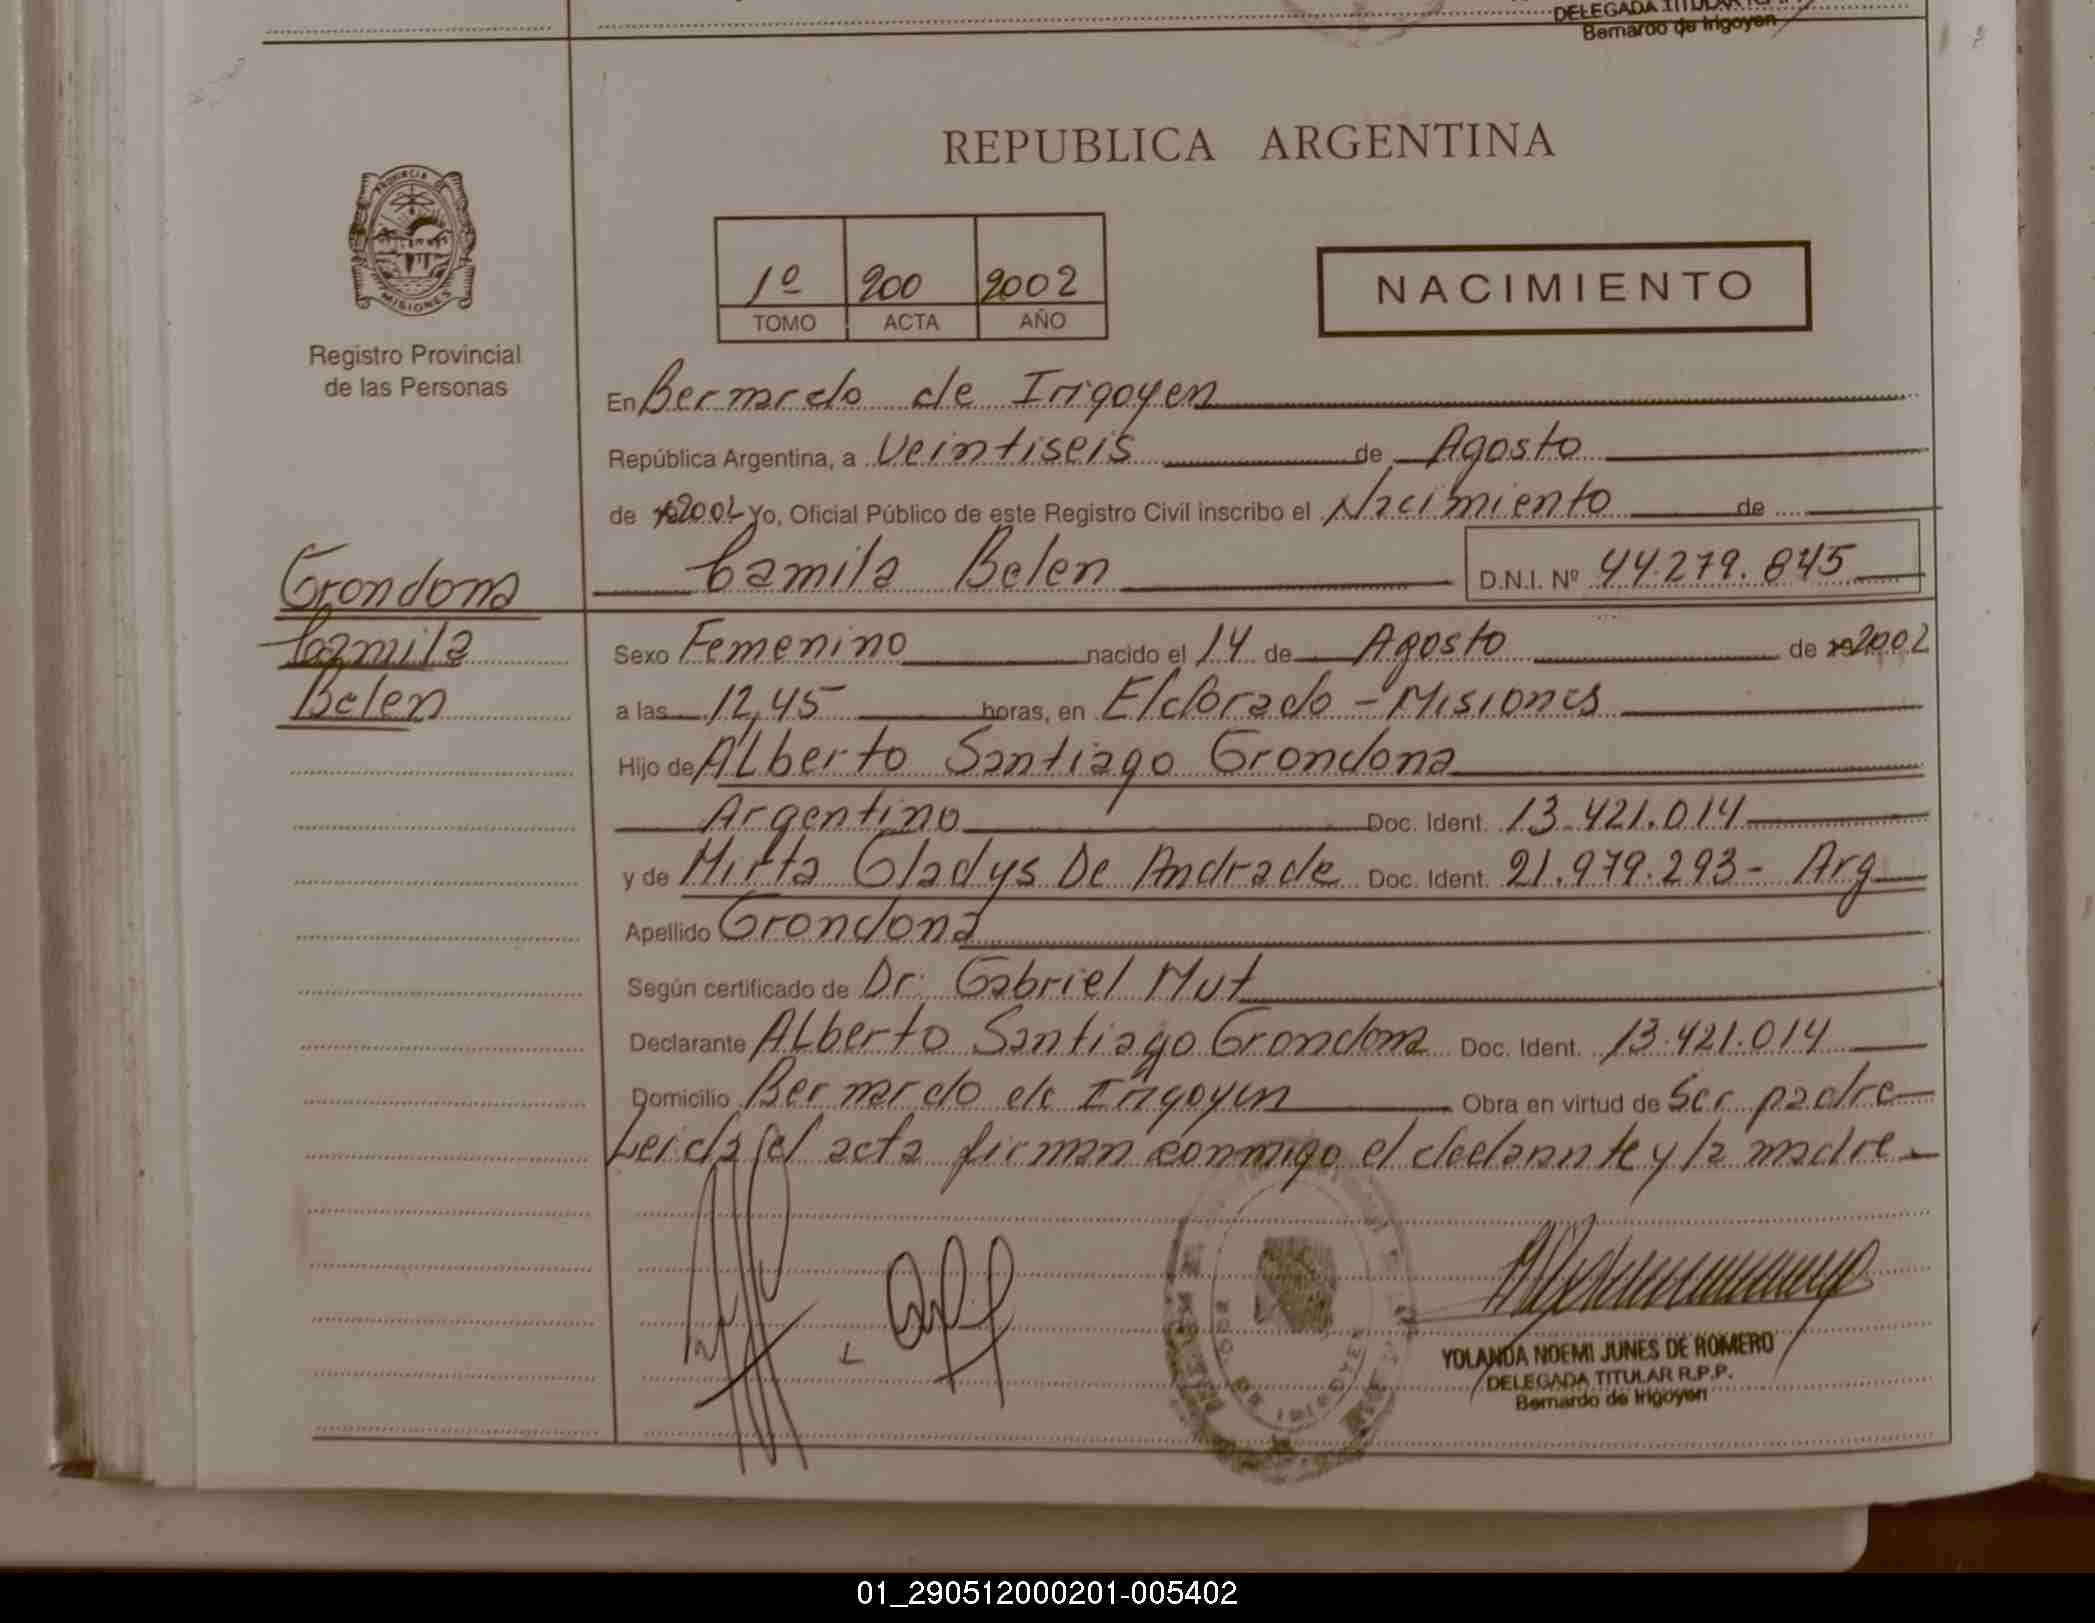 DELEGADA TITULAR R.P.P.
Bernardo de Irigoyen
REPUBLICA ARGENTINA
PROVINCIA DE
MISIONES
Registro Provincial
de las Personas
1º 200 2002
TOMO ACTA AÑO
NACIMIENTO
En Bernardo de Irigoyen
República Argentina, a Veintiseis de Agosto
de 2002 Yo, Oficial Público de este Registro Civil inscribo el Nacimiento de
Camila Belen D.N.I. Nº 44.279.845
Grondona
Camila
Belen
Sexo Femenino nacido el 14 de Agosto de 2002
a las 12,45 horas, en Eldorado - Misiones
Hijo de Alberto Santiago Grondona
Argentino Doc. Ident. 13.421.014
y de Mirta Gladys De Andrade Doc. Ident. 21.979.293 - Arg
Apellido Grondona
Según certificado de Dr. Gabriel Mut
Declarante Alberto Santiago Grondona Doc. Ident. 13.421.014
Domicilio Bernardo de Irigoyen Obra en virtud de Ser padre
Leida el acta firman conmigo el declarante y la madre
YOLANDA NOEMI JUNES DE ROMERO
DELEGADA TITULAR R.P.P.
Bernardo de Irigoyen
01_290512000201-005402